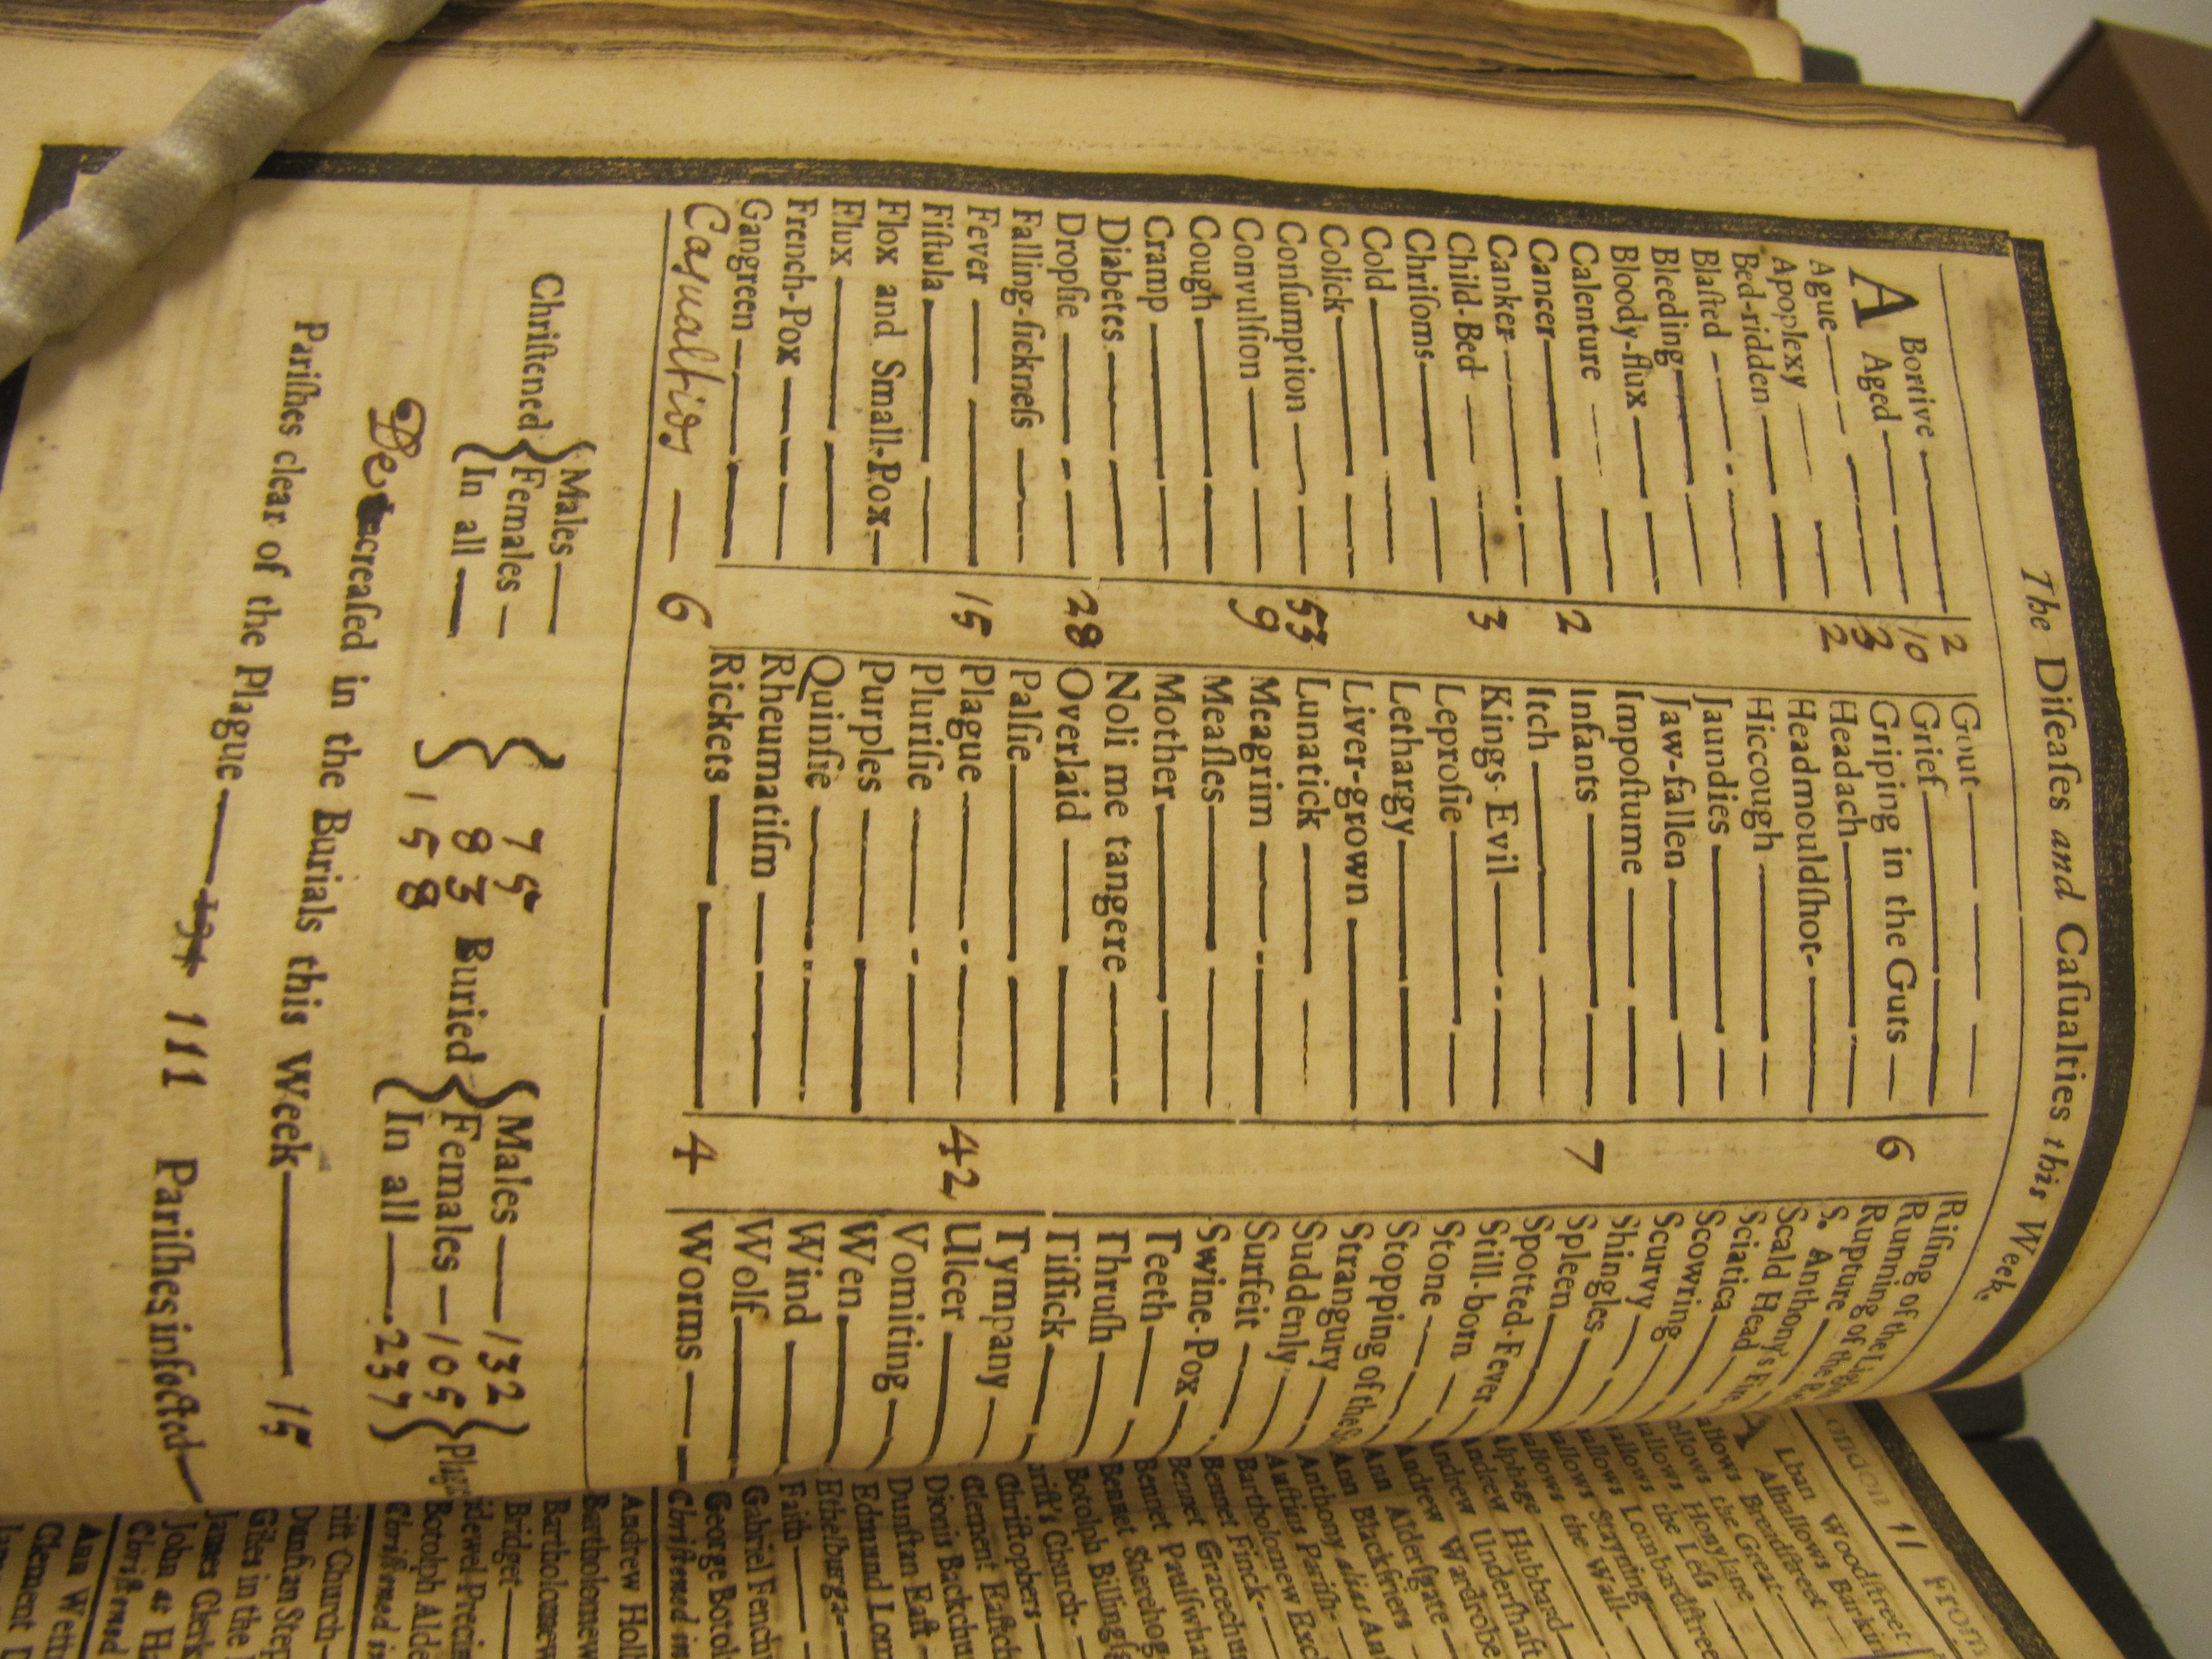 The Diſeaſes and Caſualties this Week.
ABortive 2
Aged 10
Ague
Apoplexy 2
Bed-ridden
Blaſted
Bleeding
Bloody-flux
Calenture
Cancer 2
Canker
Child-Bed 3
Chriſoms
Cold
Colick
Conſumption 53
Convulſion 9
Cough
Cramp
Diabetes
Dropſie 28
Falling-ſickneſs
Fever 15
Fiſtula
Flox and Small-Pox
Flux
French-Pox
Gangreen
Caſualties 6
Gout
Grief
Griping in the Guts 6
Headach
Headmouldſhot
Hiccough
Jaundies
Jaw-fallen
Impoſtume
Infants 7
Itch
Kings-Evil
Leproſie
Lethargy
Liver-grown
Lunatick
Meagrim
Meaſles
Mother
Noli me tangere
Overlaid
Palſie
Plague 42
Pluriſie
Purples
Quinſie
Rheumatiſm
Rickets 4
Riſing of the
Running of the
Rupture
S. Anthony's
Scald Head
Sciatica
Scowring
Scurvy
Shingles
Spleen
Spotted-Fever
Still-born
Stone
Stopping of the
Strangury
Suddenly
Surfeit
Swine-Pox
Teeth
Thruſh
Tiſſick
Tympany
Ulcer
Vomiting
Wen
Wind
Wolf
Worms
Chriſtened { Males 75
Females 83
In all 158
Buried { Males 132
Females 105
In all 237
Decreaſed in the Burials this Week 15
Pariſhes clear of the Plague 111 Pariſhes infected
From
Lban Woodſtreet
Alhallows
Breadſtreet
the Great
Honylane
the Leſs
Lombardſtreet
Stayning
the Wall
Alphage
Andrew Hubbard
Andrew Underſhaft
Andrew Wardrobe
Ann Alderſgate
Ann Blackfriers
Anthony alias
Auſtins Pariſh
Bartholomew
Bennet Finck
Bennet
Bennet
Bennet Sherehog
Botolph
Church
Chriſtophers
Clement
Dionis
Dunſtan Eaſt
Edmund
Ethelburga
Faith
Gabriel
George
Chriſtened in
Andrew
Bartholomew
Bartholomew
Bridget
Botolph
Chriſtened in
Church
Dunſtan
Giles in the
James
John at
Chriſtned
Ann
Clement